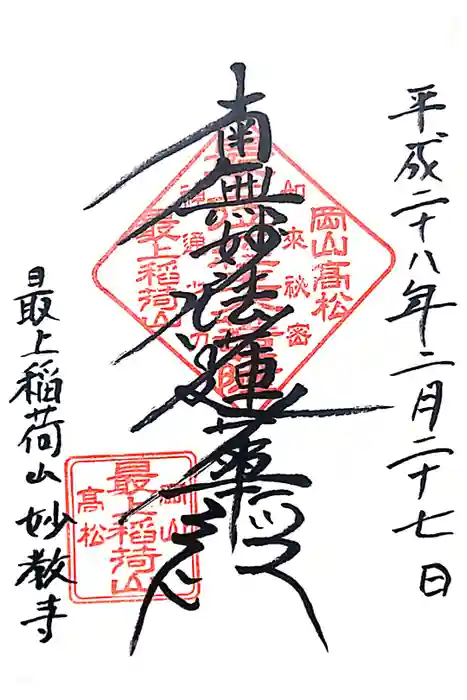 平成二十八年二月二十七日
南無妙法蓮華経
最上稲荷山 妙教寺
岡山高松
如来秘密
神通之力
最上稲荷山
岡山
最上稲荷山
高松